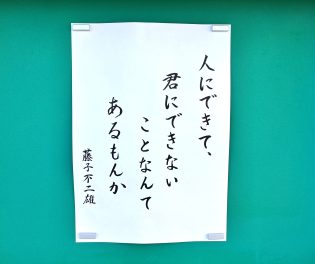 人にできて、
君にできない
ことなんて
あるもんか
藤子不二雄